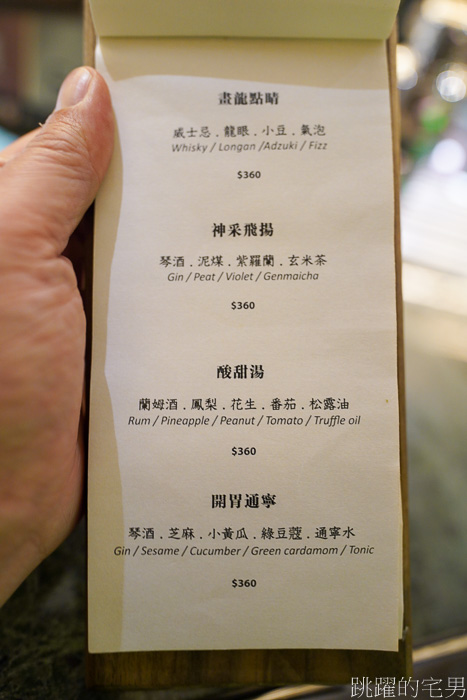 畫龍點睛
威士忌．龍眼．小豆．氣泡
Whisky / Longan /Adzuki / Fizz
$360
神采飛揚
琴酒．泥煤．紫羅蘭．玄米茶
Gin / Peat / Violet / Genmaicha
$360
酸甜湯
蘭姆酒．鳳梨．花生．番茄．松露油
Rum / Pineapple / Peanut / Tomato / Truffle oil
$360
開胃通寧
琴酒．芝麻．小黃瓜．綠豆蔻．通寧水
Gin / Sesame / Cucumber / Green cardamom / Tonic
$360
跳躍的宅男